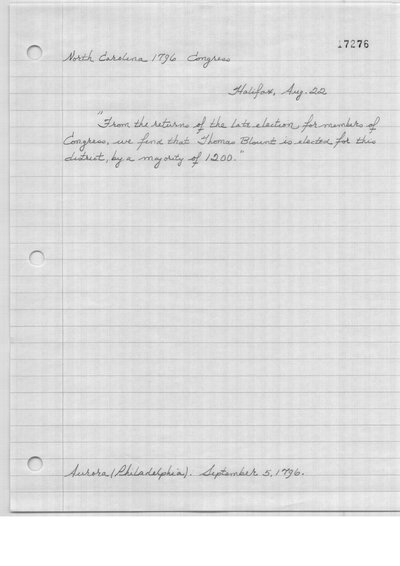 17276
North Carolina 1796 Congress
Halifax, Aug. 22
"From the returns of the late election for members of
Congress, we find that Thomas Blount is elected for this
district, by a majority of 1200."
Aurora (Philadelphia). September 5, 1796.